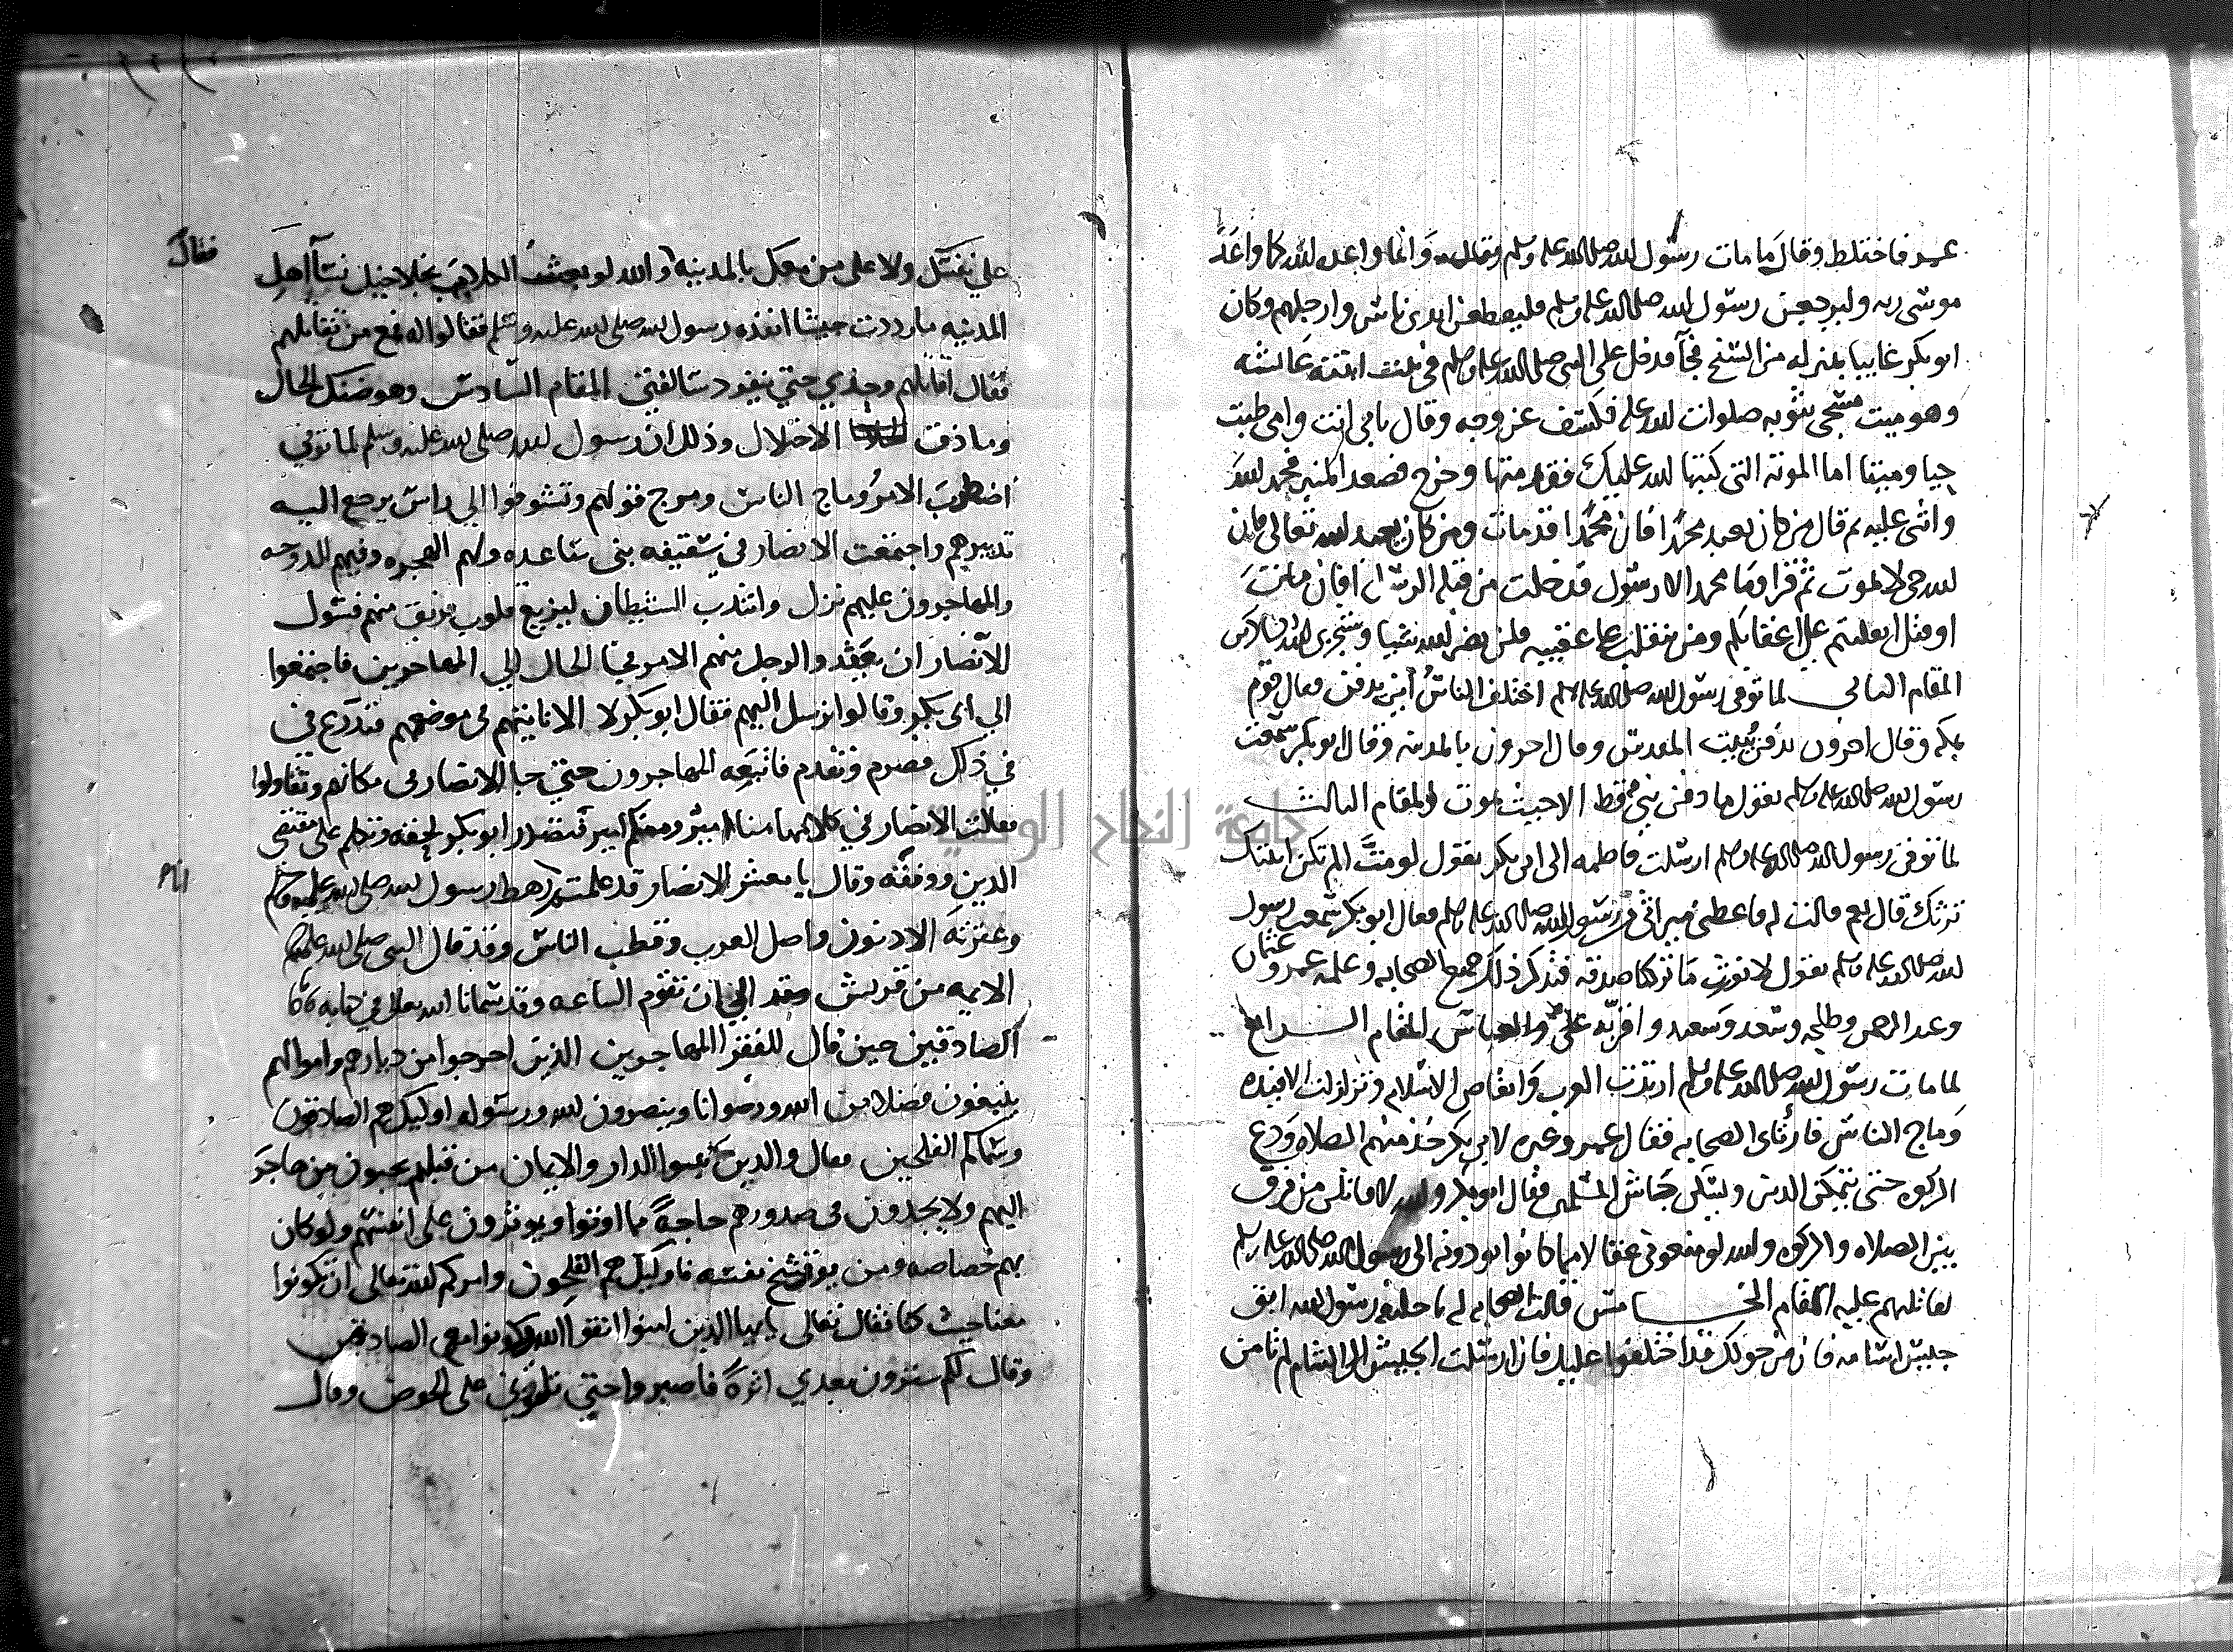 عمر فاختلط وقال ما مات رسول الله صلى الله عليه وسلم وقال وانما واعده الله كما واعد
موسى ربه وليرجعن رسول الله صلى الله عليه وسلم فليقطعن ايدى ناس وارجلهم وكان
ابو بكر غايبا بمنزله من السنح فجآ فدخل على النبى صلى الله عليه وسلم فى بيت ابنته عائشه
وهو ميت مسجى بثوبه صلوات الله عليه فكشف عن وجهه وقال بابى انت وامى طبت
حيا وميتا اما الموتة التى كتبها الله عليك فقد متها وخرج فصعد المنبر فحمد الله
واثنى عليه ثم قال من كان يعبد محمدا فان محمدا قد مات ومن كان يعبد الله تعالى فان
الله حى لا يموت ثم قرا وما محمد الا رسول قد خلت من قبله الرسل افان مات
او قتل انقلبتم على اعقابكم ومن ينقلب على عقبيه فلن يضر الله شيا وسيجزى الله الشاكرين
المقام الثانى لما توفى رسول الله صلى الله عليه وسلم اختلف الناس أين يدفن فقال قوم
بمكه وقال اخرون يدفن ببيت المقدس وقال اخرون بالمدينه وقال ابو بكر سمعت
رسول الله صلى الله عليه وسلم يقول ما دفن نبى قط الا حيث يموت المقام الثالث
لما توفى رسول الله صلى الله عليه وسلم ارسلت فاطمه الى ابى بكر يقول لو مت الم تكن ابنتك
ترثك قال نعم قالت له فاعطنى ميراثى من رسول الله صلى الله عليه وسلم فقال ابو بكر سمعت رسول
الله صلى الله عليه وسلم يقول لا نورث ما تركنا صدقه فتذكر ذلك جميع الصحابه وعلمه عمر وعثمان
وعبد الرحمن وطلحه وسعد وسعيد واقر به على والعباس المقام الرابع
لما مات رسول الله صلى الله عليه وسلم ارتدت العرب وانقاص الاسلام وتزلزلت الافيده
وماج الناس فارتاى الصحابه فقال عمر وغيره لابى بكر خذ منهم الصلاه ودع
الزكوه حتى يتمكن الدين ويسكن جاش المسلمين فقال ابو بكر والله لاقاتلن من فرق
بين الصلاه والزكوه والله لو منعونى عقالا مما كانوا يودونه الى رسول الله صلى الله عليه وسلم
لقاتلتهم عليه المقام الخامس قالت الصحابه له يا خليفه رسول الله ابق
جيش اسامه فان من حولك قد اختلفوا عليك فان ارسلت الجيش الى الشام لم نامن
على نفسك ولا على من معك بالمدينه والله لو بعثت الكلاب بخلاخيل نسآ اهل
المدينه ما رددت جيشا انفذه رسول الله صلى الله عليه وسلم فقالوا له فمع من تقاتلهم
فقال اقاتلهم وحدي حتي تنفرد سالفتي المقام السادس وهو ضنك الحال
وما ذقت الاختلال وذلك ان رسول الله صلى الله عليه وسلم لما توفي
اضطرب الامر وماج الناس ومرج قولهم وتشوفوا الي راس يرجع اليه
تدبيرهم واجتمعت الانصار في سقيفه بني ساعده ولهم الهجره وفيهم الدوحه
والمهاجرون عليهم نزل وانتدب الشيطان ليزيغ قلوب فريق منهم فسول
للانصار ان يعقدوا لرجل منهم الامر فجا الحال الي المهاجرين فاجتمعوا
الي ابى بكر وقالوا نرسل اليهم فقال ابو بكر لا الا ناتيهم فى موضعهم فتدرع في
في ذلك فصرم وتقدم فاتبعه المهاجرون حتي جا الانصار فى مكانهم وتقاولوا
فقالت الانصار في كلامها منا امير ومنكم امير فتصدر ابو بكر لحقه وتكلم على مقتضى
الدين ووفقه وقال يا معشر الانصار قد علمتم رهط رسول الله صلى الله عليه وسلم
وعترته الادنون واصل العرب وقطب الناس وقد قال النبى صلى الله عليه وسلم
الايمه من قريش الي ان تقوم الساعه وقد سمانا الله تعالى في كتابه
الصادقين حين قال للفقرا المهاجرين الذين اخرجوا من ديارهم واموالهم
يبتغون فضلا من الله ورضوانا وينصرون الله ورسوله اوليك هم الصادقون
وسماكم المفلحين فقال والذين تبووا الدار والايمان من قبلهم يحبون من هاجر
اليهم ولا يجدون فى صدورهم حاجة مما اوتوا ويوثرون على انفسهم ولو كان
بهم خصاصه ومن يوق شح نفسه فاوليك هم المفلحون وامركم الله تعالى ان تكونوا
معنا حيث كنا فقال تعالى يايها الذين امنوا اتقوا الله وكونوا مع الصادقين
وقال لكم سترون بعدي اثرة فاصبروا حتي تلقوني على الحوض وقال
فقال